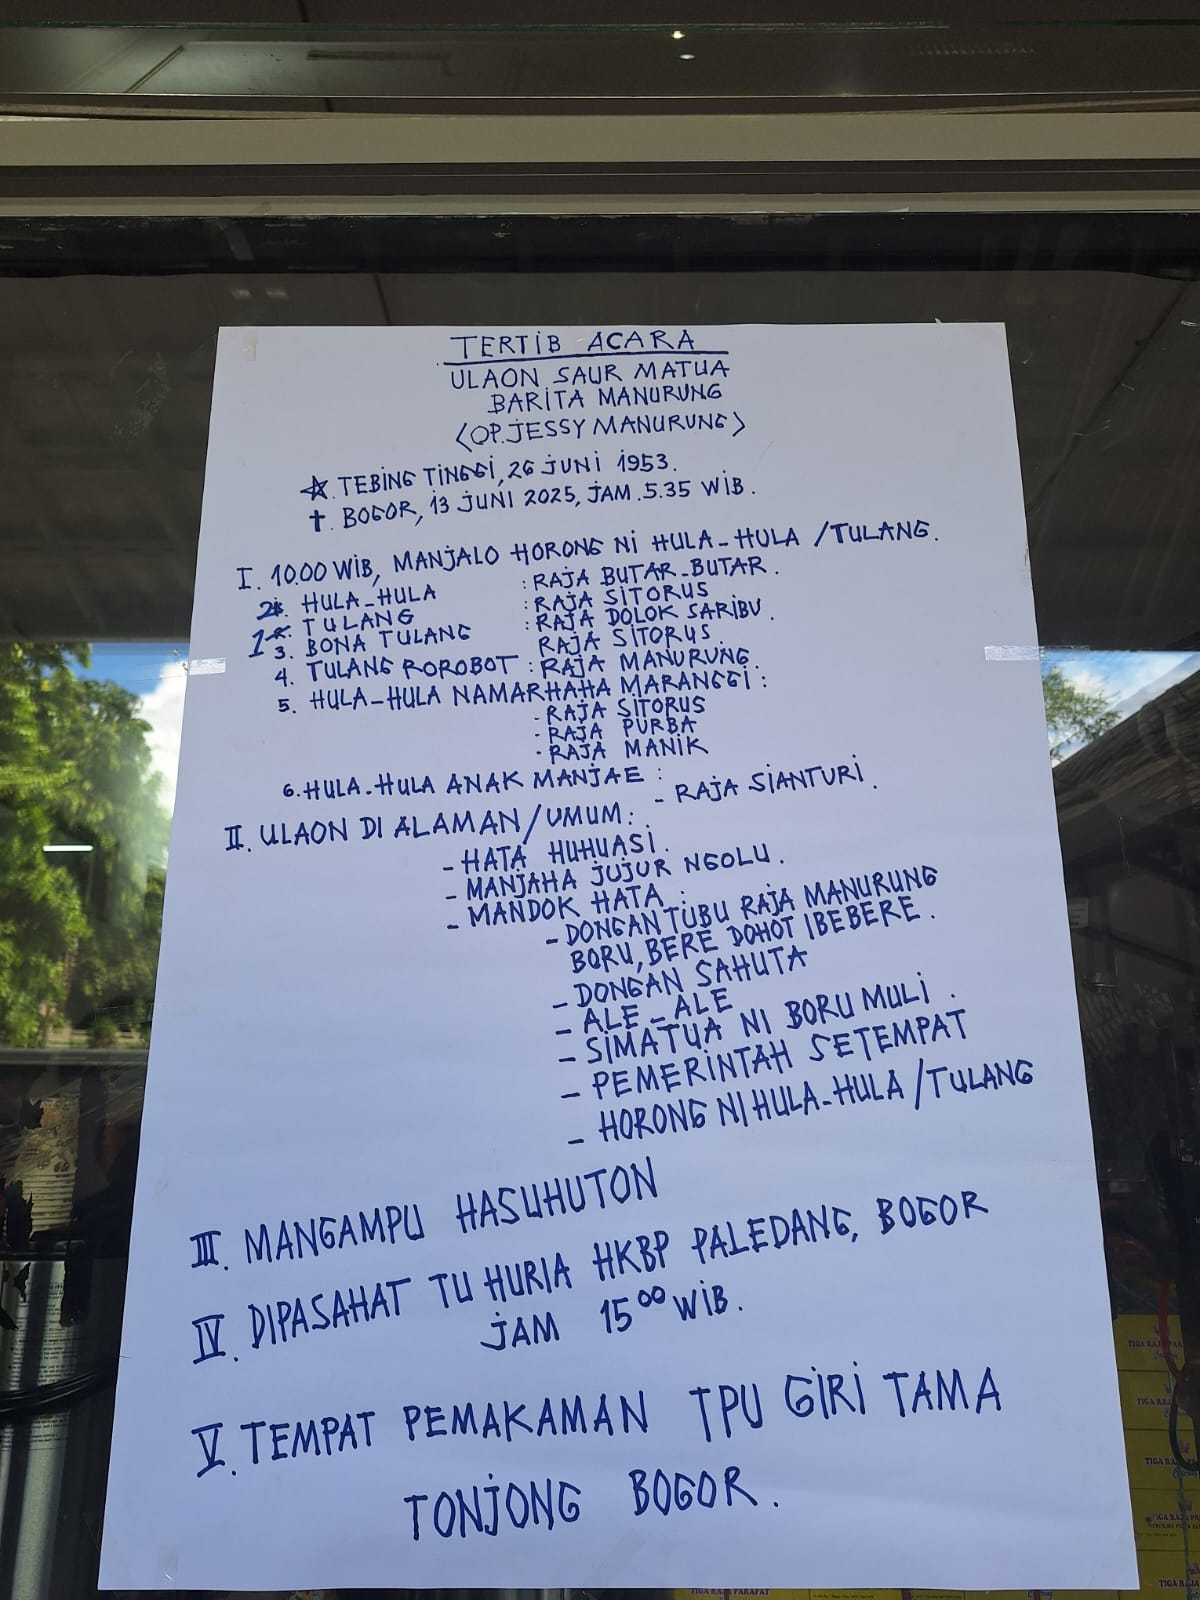 TERTIB ACARA
ULAON SAUR MATUA
BARITA MANURUNG
<OP.JESSY MANURUNG>
☆. TEBING TINGGI, 26 JUNI 1953.
†. BOGOR, 13 JUNI 2025, JAM. 5.35 WIB.
I. 10.00 WIB, MANJALO HORONG NI HULA-HULA /TULANG.
2. HULA-HULA : RAJA BUTAR-BUTAR.
1. TULANG : RAJA SITORUS
3. BONA TULANG : RAJA DOLOK SARIBU.
RAJA SITORUS.
4. TULANG ROROBOT : RAJA MANURUNG.
5. HULA-HULA NAMARHAHA MARANGGI :
- RAJA SITORUS
- RAJA PURBA
- RAJA MANIK
6. HULA-HULA ANAK MANJAE :
- RAJA SIANTURI.
II. ULAON DI ALAMAN/UMUM:
- HATA HUHUASI.
- MANJAHA JUJUR NGOLU.
- MANDOK HATA :
- DONGAN TUBU RAJA MANURUNG
BORU, BERE DOHOT IBEBERE.
- DONGAN SAHUTA
- ALE-ALE
- SIMATUA NI BORU MULI.
- PEMERINTAH SETEMPAT
- HORONG NI HULA-HULA /TULANG
III. MANGAMPU HASUHUTON
IV. DIPASAHAT TU HURIA HKBP PALEDANG, BOGOR
JAM 15⁰⁰ WIB.
V. TEMPAT PEMAKAMAN TPU GIRI TAMA
TONJONG BOGOR.
TIGA RAJA PARAPAT